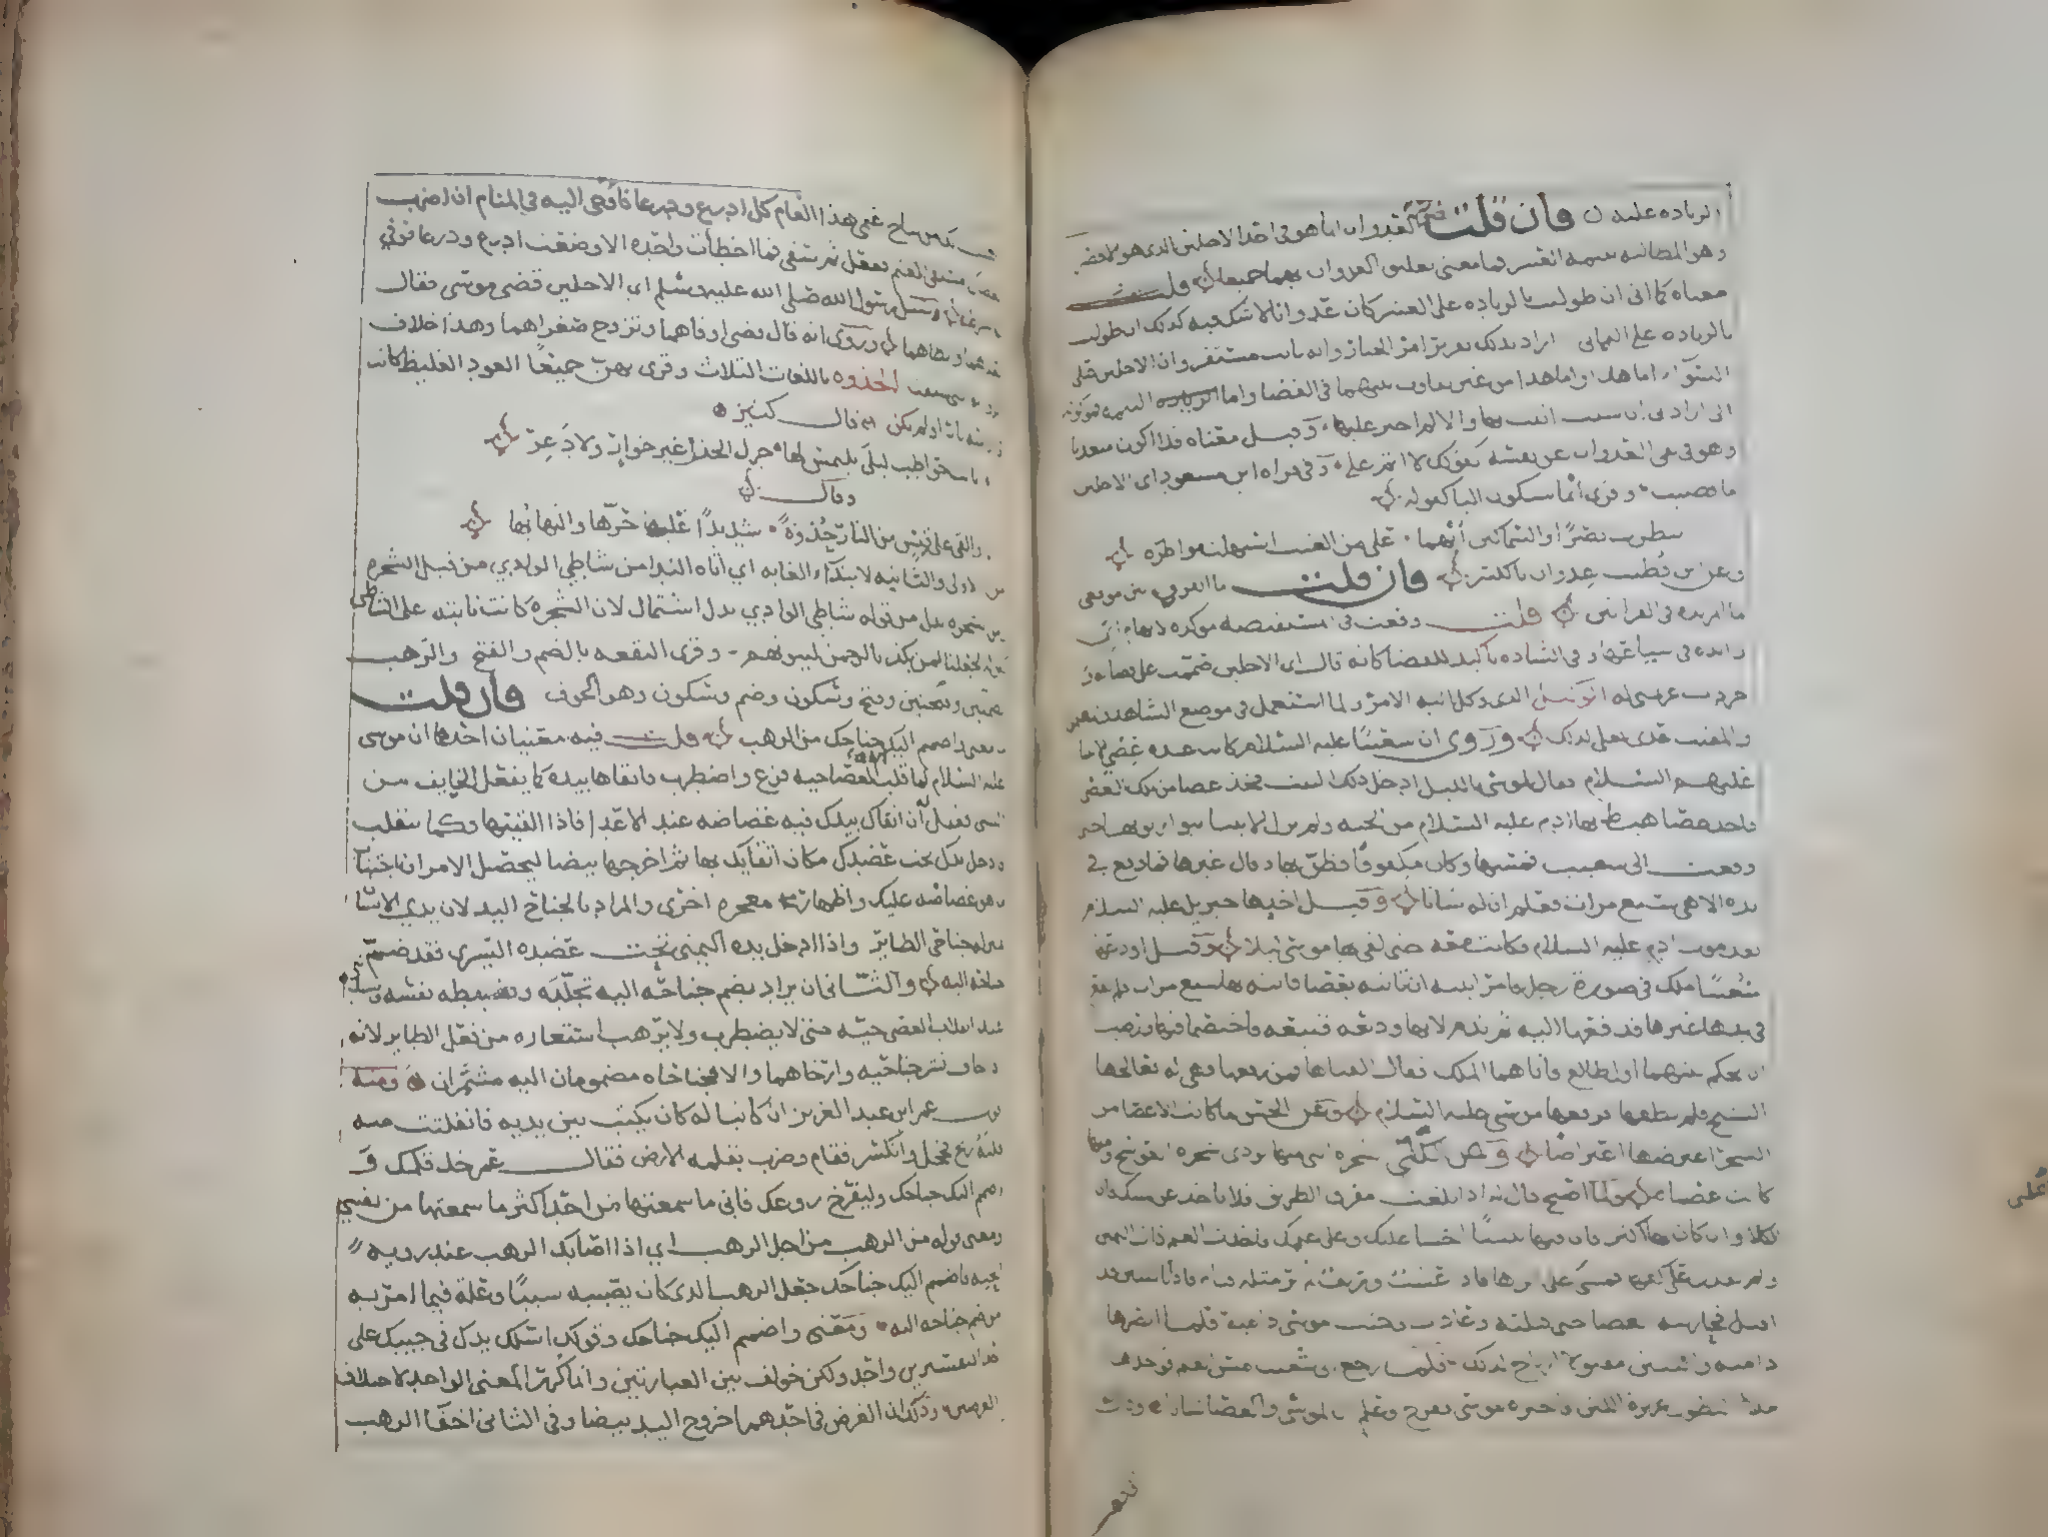 الزياده عليه ن فان قلت تصور العدوان انما هو في احد الاجلين الذي هو الاقصر
وهو المطالبه بتتمه العشر فما معنى تعليق العدوان بهما جميعا قلت
معناه كما اني ان طولبت بالزياده على العشر كان عدوانا لا شك فيه كذلك ان طولبت
بالزياده على الثماني اراد بذلك تقرير امر الخيار وانه ثابت مستقر وان الاجلين على
السوآء اما هذا واما هذا من غير تفاوت بينهما في القضا واما التتمه موكوله
الى اراد تي ان شيت اتيت بها والا لم اجبر عليها وقيل معناه فلا اكون متعديا
وهو في نفي العدوان عن نفسه كقولك لا اثم علي وفي قراه ابن مسعود اي الاجلين
ما قضيت وقرى ايما بسكون اليا كقوله
تنظرت نصرًا والسماكين أيهما علي من الغيث استهلت مواطره
وعن بن قطيب عدوان بالكسر فان قلت ما الفرق بين موقعي
ما المزيده في القراتين قلت وقعت في المستفيضه موكده لابهام اي
زايده في شياعها وفي الشاده تاكيد للقضا كانه قال اي الاجلين صممت على قضايه و
جردت عزيمتي له الوكيل الذي وكل اليه الامر ولما استعمل في موضع الشاهد والمهيمن
والمقيت عدى بعلى لذلك وروى ان شعيبًا عليه السلام كانت عنده عصي الانبيا
عليهم السلام فقال لموسى بالليل ادخل ذلك البيت فخذ عصا من تلك العصي
فاخذ عصا هبط بها ادم عليه السلام من الجنه ولم يزل الانبيا يتوارثونها حتى
وقعت الى شعيب فمسها وكان مكفوفًا فظن بها وقال غيرها فما وقع في
يده الا هي سبع مرات فعلم ان له شانا وقيل اخذها جبريل عليه السلام
بعد موت ادم عليه السلام فكانت معه حتى لقي بها موسى ليلا وقيل اودعها
شعيبًا ملك في صورة رجل فامر ابنته ان تاتيه بعصا فاتته بها سبع مرات فلم يقع
في يدها غيرها فدفعها اليه ثم ندم لانها وديعه فتبعه فاختصما فيها ورضيا
ان يحكم بينهما اول طالع فاتاهما الملك فقال القياها فمن رفعها فهي له فعالجها
الشيخ فلم يطقها ورفعها موسى عليه السلام وعن الحسن ما كانت الا عصا من
الشجر اعترضها اعتراضًا وعن الكلبي شجره التي منها نودي شجره العوسج ومنها
كانت عصاه ولما اصبح قال له اذا بلغت مفرق الطريق فلا تاخذ عن يمينك فان
الكلا وان كان بها اكثر فان فيها تنينًا اخشا عليك وعلى غنمك فاخذت الغنم ذات اليمين
ولم يقدر على كفها فمشى على اثرها فاذا عشب وريف لم ير مثله فنام فاذا بالتنين قد
اقبل فحاربته العصا حتى قتلته وعادت الى جنب موسى داميه فلما ابصرها
داميه والتنين مقتولا ارتاح لذلك فلما رجع الى شعيب مس الغنم فوجدها
ملأى البطون غزيرة اللبن فاخبره موسى ففرح وعلم ان لموسى والعصا شانا وقال
تتمر
على
من نتاج غنمي هذا العام كل ادرع ودرعا فاوحى اليه في المنام ان اضرب
بعصاك مستقى الغنم ففعل ثم سقى فما اخطات واحده الا وضعت ادرع ودرعا فوفى
وسيل رسول الله صلى الله عليه وسلم اي الاجلين قضى موسى فقال
ابعدهما وابطاهما وروى انه قال قضى اوفاهما وتزوج صغراهما وهذا خلاف
الجذوه باللغات الثلاث وقرى بهن جميعًا العود الغليظ كانت
في راسه نار او لم يكن قال كثير
باتت حواطب ليلى يلتمسن لها جزل الجذى غير خوار ولا دعر
وقال
والقى على قبس من النار جذوةً شديدًا عليه حرها والتهابها
من الاولى والثانيه لابتدآء الغايه اي اتاه الندا من شاطى الوادي من قبل الشجره
ومن الشجره بدل من قوله شاطى الوادي بدل اشتمال لان الشجره كانت نابته على الشاطى
كقوله لجعلنا لمن يكفر بالرحمن لبيوتهم وقرى البقعه بالضم والفتح والرهب
بضمتين وفتحتين وفتح وسكون وضم وسكون وهو الخوف فان قلت
ما معنى واضمم اليك جناحك من الرهب قلت فيه معنيان احدهما ان موسى
عليه السلام لما قلب الله العصا حيه فزع واضطرب فاتقاها بيده كما يفعل الخايف من
الشي فقيل له ان اتقاك بيدك فيه غضاضه عند الاعدا فاذا القيتها فكما تنقلب
حيه فادخل يدك تحت عضدك مكان اتقايك بها ثم اخرجها بيضا ليحصل الامران اجتناب
ما هو غضاضه عليك واظهار معجزه اخرى والمراد بالجناح اليد لان يدي الانسان
بمنزله جناحي الطاير واذا ادخل يده اليمنى تحت عضده اليسرى فقد ضم
جناحه اليه والثاني ان يراد بضم جناحه اليه تجلده وضبطه نفسه وتشدده
عند انقلاب العصى حيه حتى لا يضطرب ولا يرهب استعاره من فعل الطاير لانه
اذا خاف نشر جناحيه وارخاهما والا فجناحاه مضمومان اليه مشمران ومنه
عن عمر ابن عبد العزيز ان كاتبا له كان يكتب بين يديه فانفلتت منه
فلته ريح فخجل وانكسر فقام وضرب بقلمه الارض فقال عمر خذ قلمك و
اضمم اليك جناحك وليفرخ روعك فاني ما سمعتها من احد اكثر ما سمعتها من نفسي
ومعنى قوله من الرهب من اجل الرهب اي اذا اصابك الرهب عند رويه
الحيه فاضمم اليك جناحك جعل الرهب الذي كان يصيبه سببًا وعلة فيما امر به
من ضم جناحه اليه ومعنى واضمم اليك جناحك وقوله اسلك يدك في جيبك على
احد التفسيرين واحد ولكن خولف بين العبارتين وانما كرر المعنى الواحد لاختلاف
الغرضين وذلك ان الغرض في احدهما خروج اليد بيضا وفي الثاني اخفآ الرهب